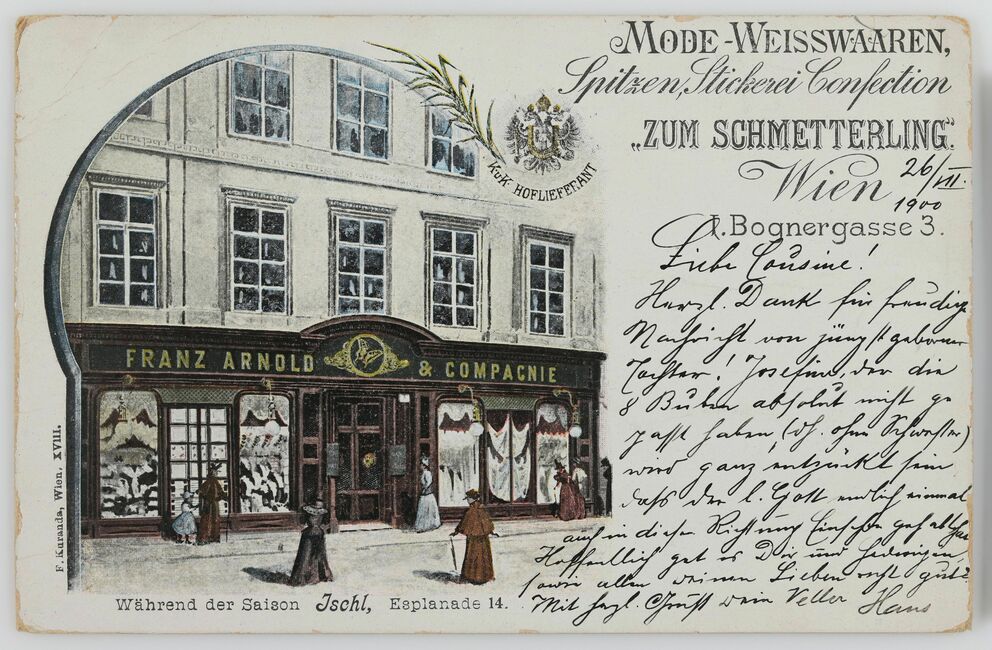 MODE-WEISSWAAREN,
Spitzen, Stickerei Confection
„ZUM SCHMETTERLING“.
Wien
26/VII.
1900
I. Bognergasse 3.
K.u.K. HOFLIEFERANT
FRANZ ARNOLD & COMPAGNIE
F. Kuranda, Wien, XVIII.
Während der Saison Ischl, Esplanade 14.
Liebe Cousine!
Herzl. Dank für freudige
Nachricht von jüngstgeborner
Tochter! Josefine, der die
8 Buben absolut nicht ge
passt haben (dh. ohne Schwester)
wird ganz entzückt sein
dass der l. Gott endlich einmal
auch in dieser Richtung Einsehen gehabt
Hoffentlich get es Dir und Hedwigen
sowie allen deinen Lieben recht gut?
Mit hzgl. Gruß dein Vetter Hans